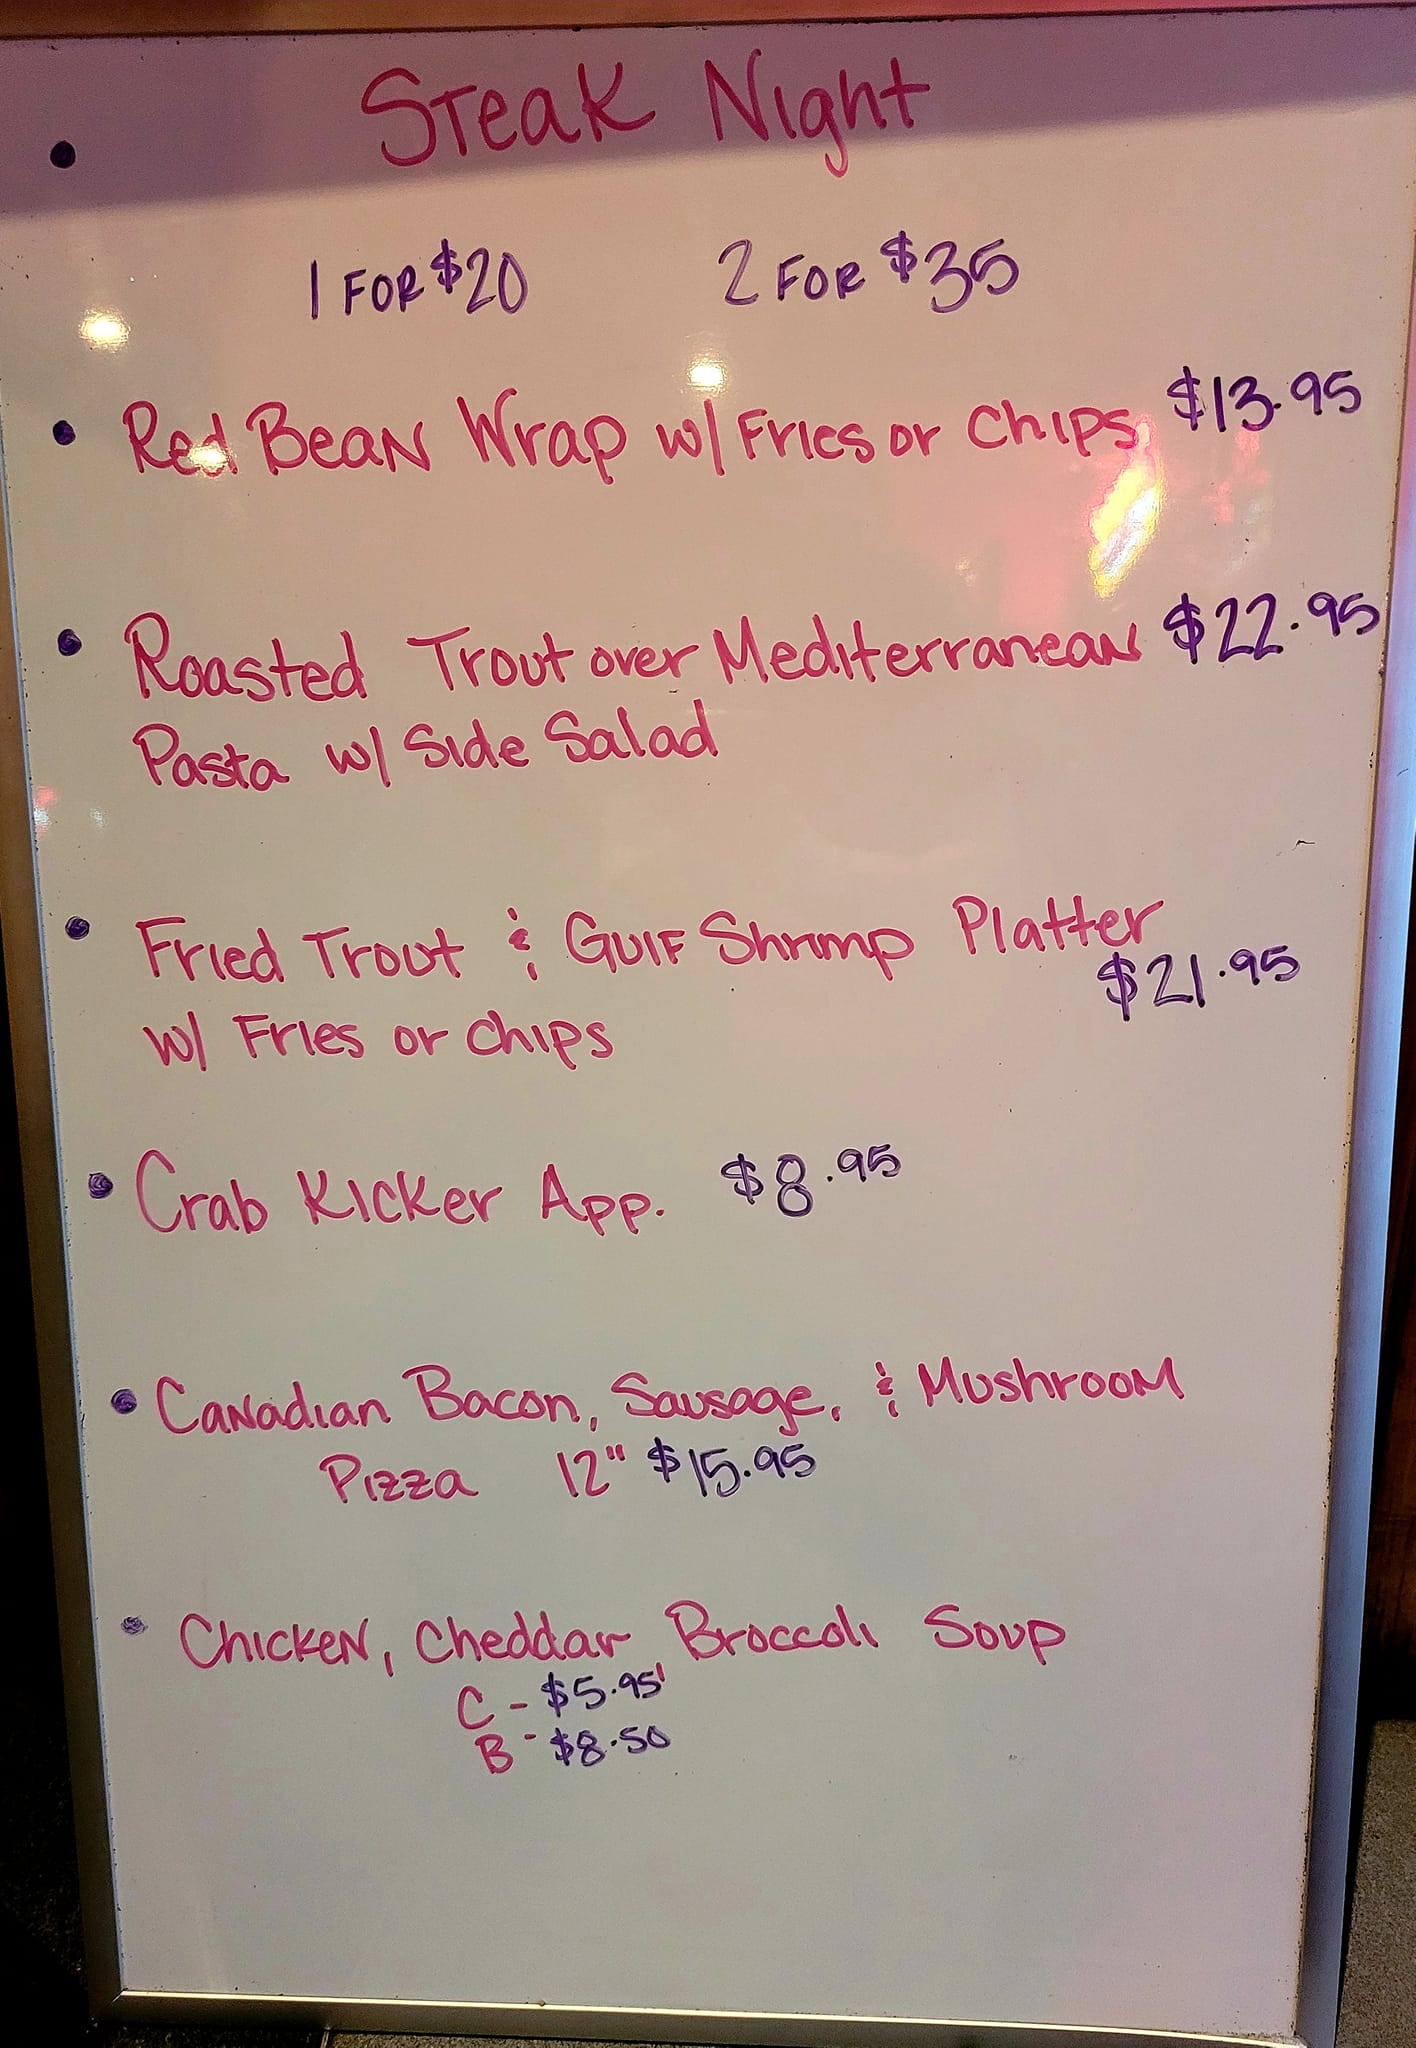 Steak Night
1 FOR $20 2 FOR $35
• Red Bean Wrap w/ Fries or Chips $13.95
• Roasted Trout over Mediterranean $22.95
Pasta w/ Side Salad
• Fried Trout & Gulf Shrimp Platter
$21.95
w/ Fries or Chips
• Crab Kicker App. $8.95
• Canadian Bacon, Sausage, & Mushroom
Pizza 12" $15.95
• Chicken, Cheddar, Broccoli Soup
C - $5.95
B - $8.50